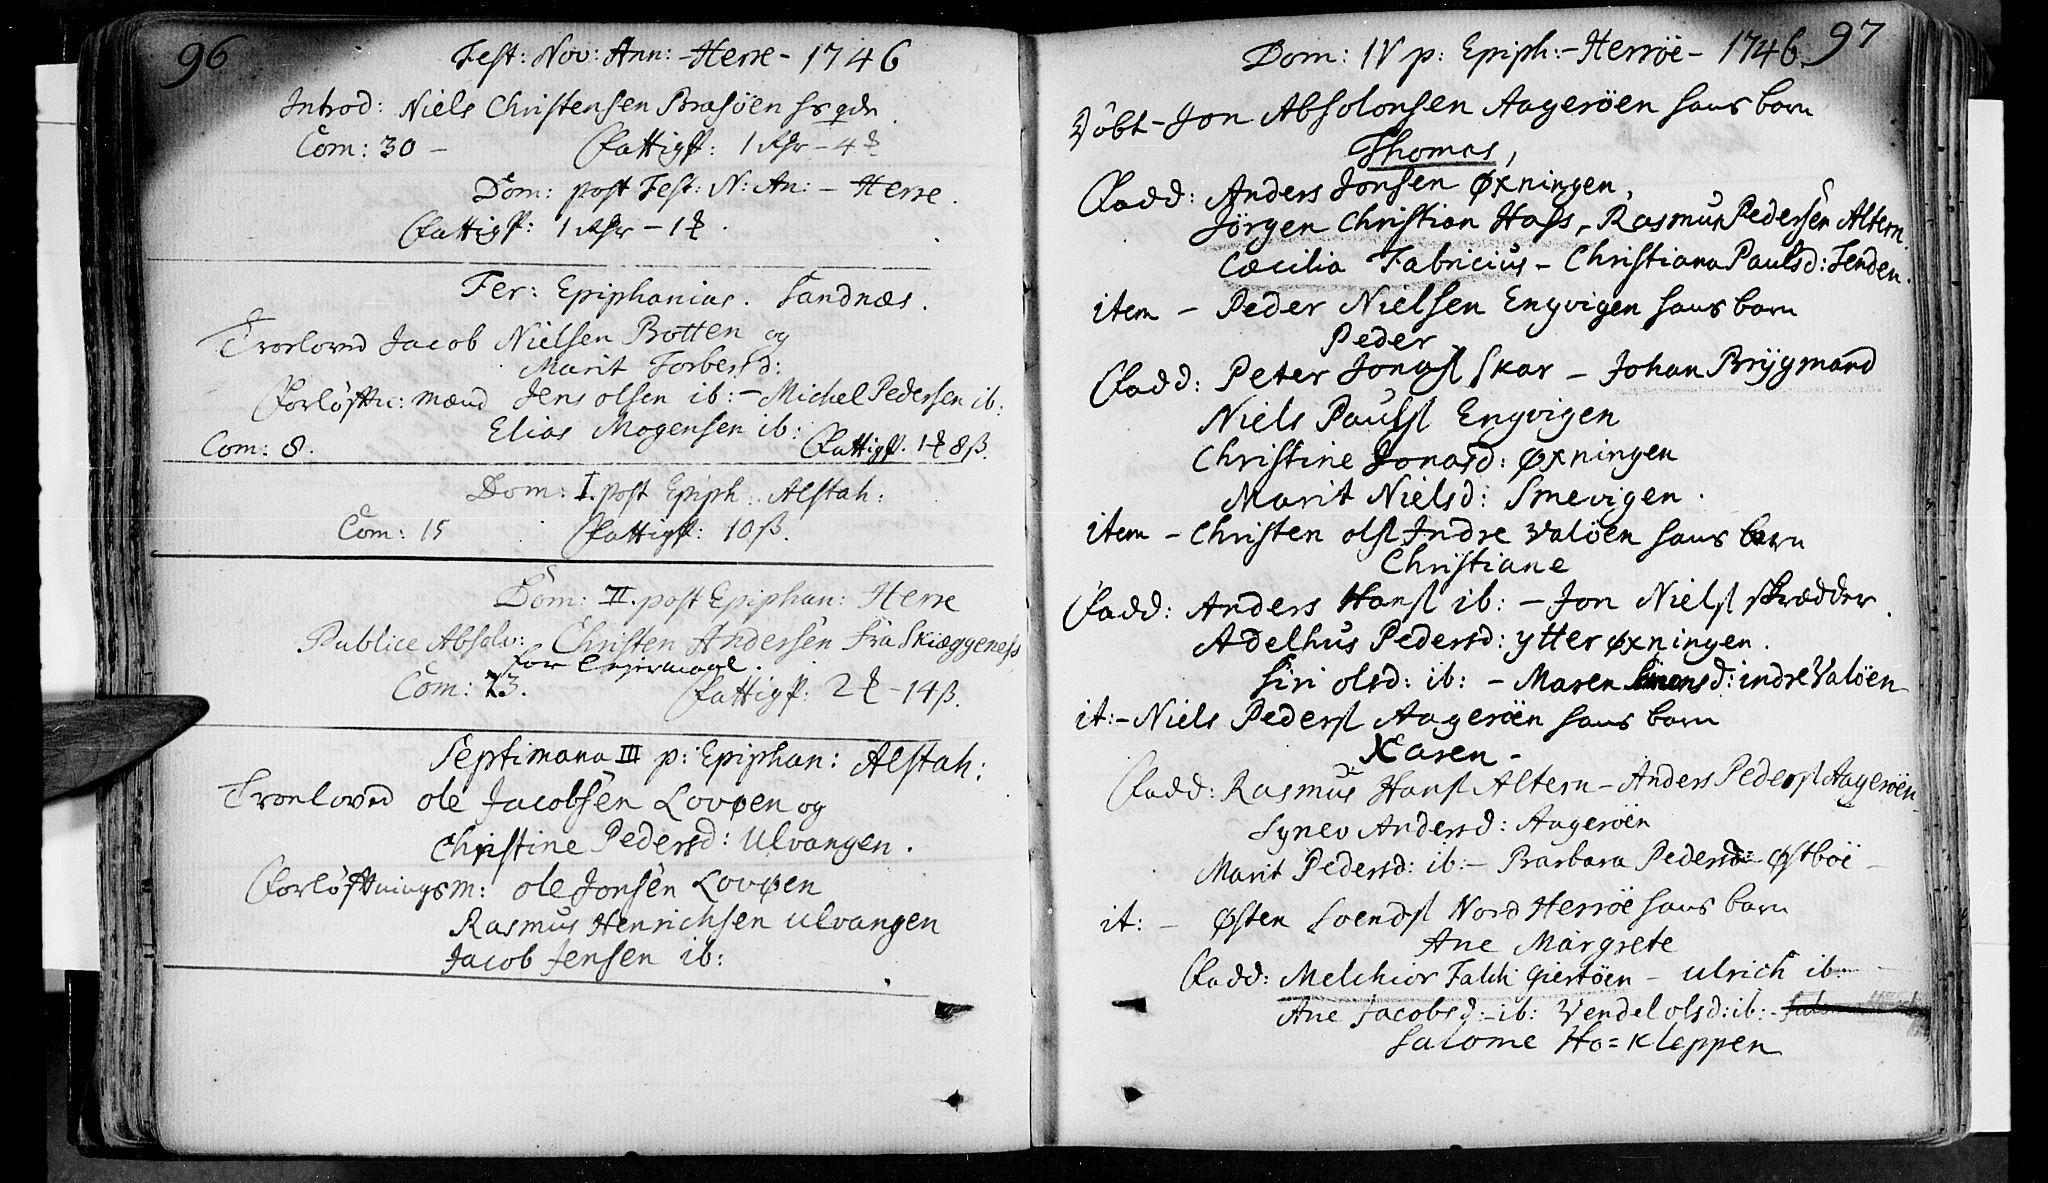 96
Fest: Nov: Ann: - Herre - 1746
Introd: Niels Christensen Brasöen hs qde
Com: 30 - Fattigp: 1 Rhr - 4
Dom: post Fest: N: An: - Herre.
Fattigp: 1 Rhr - 1
Fer: Epiphanias. Sandnæs.
Troeloved Jacob Nielsen Botten og
Marit Torbersd:
Forløfttn: mænd Jens olsen ib: - Michel Pedersen ib:
Elias Mogensen ib:
Com: 8. Fattigp. 1 8ß.
Dom: I. post Epiph: Alstah:
Com: 15 Fattigp: 10ß.
Dom: II. post Epiphan: Herre
Publice Absolv: Christen Andersen fra Skiæggeness
for Leiermaal.
Com: 73. Fattigp: 2 - 14ß.
Septimana III p: Epiphan: Alstah:
Troeloved ole Jacobsen Lovøen og
Christine Pedersd: Ulvangen.
Forløftningsm: ole Jonsen Lovøen
Rasmus Henrichsen ulvangen
Jacob Jensen ib:
97
Dom: IV p: Epiph: - Herröe - 1746.
Döbt - Jon Absolonsen Aageröen hans barn
Thomas,
Fadd: Anders Jonsen Øxningen,
Jörgen Christian Hass, Rasmus Pedersen Altern.
Cæcilia Fabricius - Christiana Paulsd: Tenden.
item - Peder Nielsen Engvigen hans barn
Peder
Fadd: Peter Jonass Skar - Johan Brÿgmand
Niels Pauls Engvigen
Christine Jonasd: Øxningen
Marit Nielsd: Smevigen.
item - Christen ols Indre Valöen hans barn
Christiane
Fadd: Anders Hans ib: - Jon Niels skrædder.
Adelhus Pedersd: ytter øxningen.
Siri olsd: ib: - Maren Simensd: indre Valöen
it: - Niels Peders Aageröen hans barn
Karen -
Fadd: Rasmus Hans Altern - Anders Peders Aageröen
Synev Andersd: Aageröen
Marit Pedersd: ib: - Barbara Pedersd: Østböe -
it: - Østen Svends Nord Herröe hans barn
Ane Margrete
Fadd: Melchior Falch Giertöen - ulrich ib:
Ane Jacobsd: - ib: Vendel olsd: ib: -
Salome Ho= Kleppen